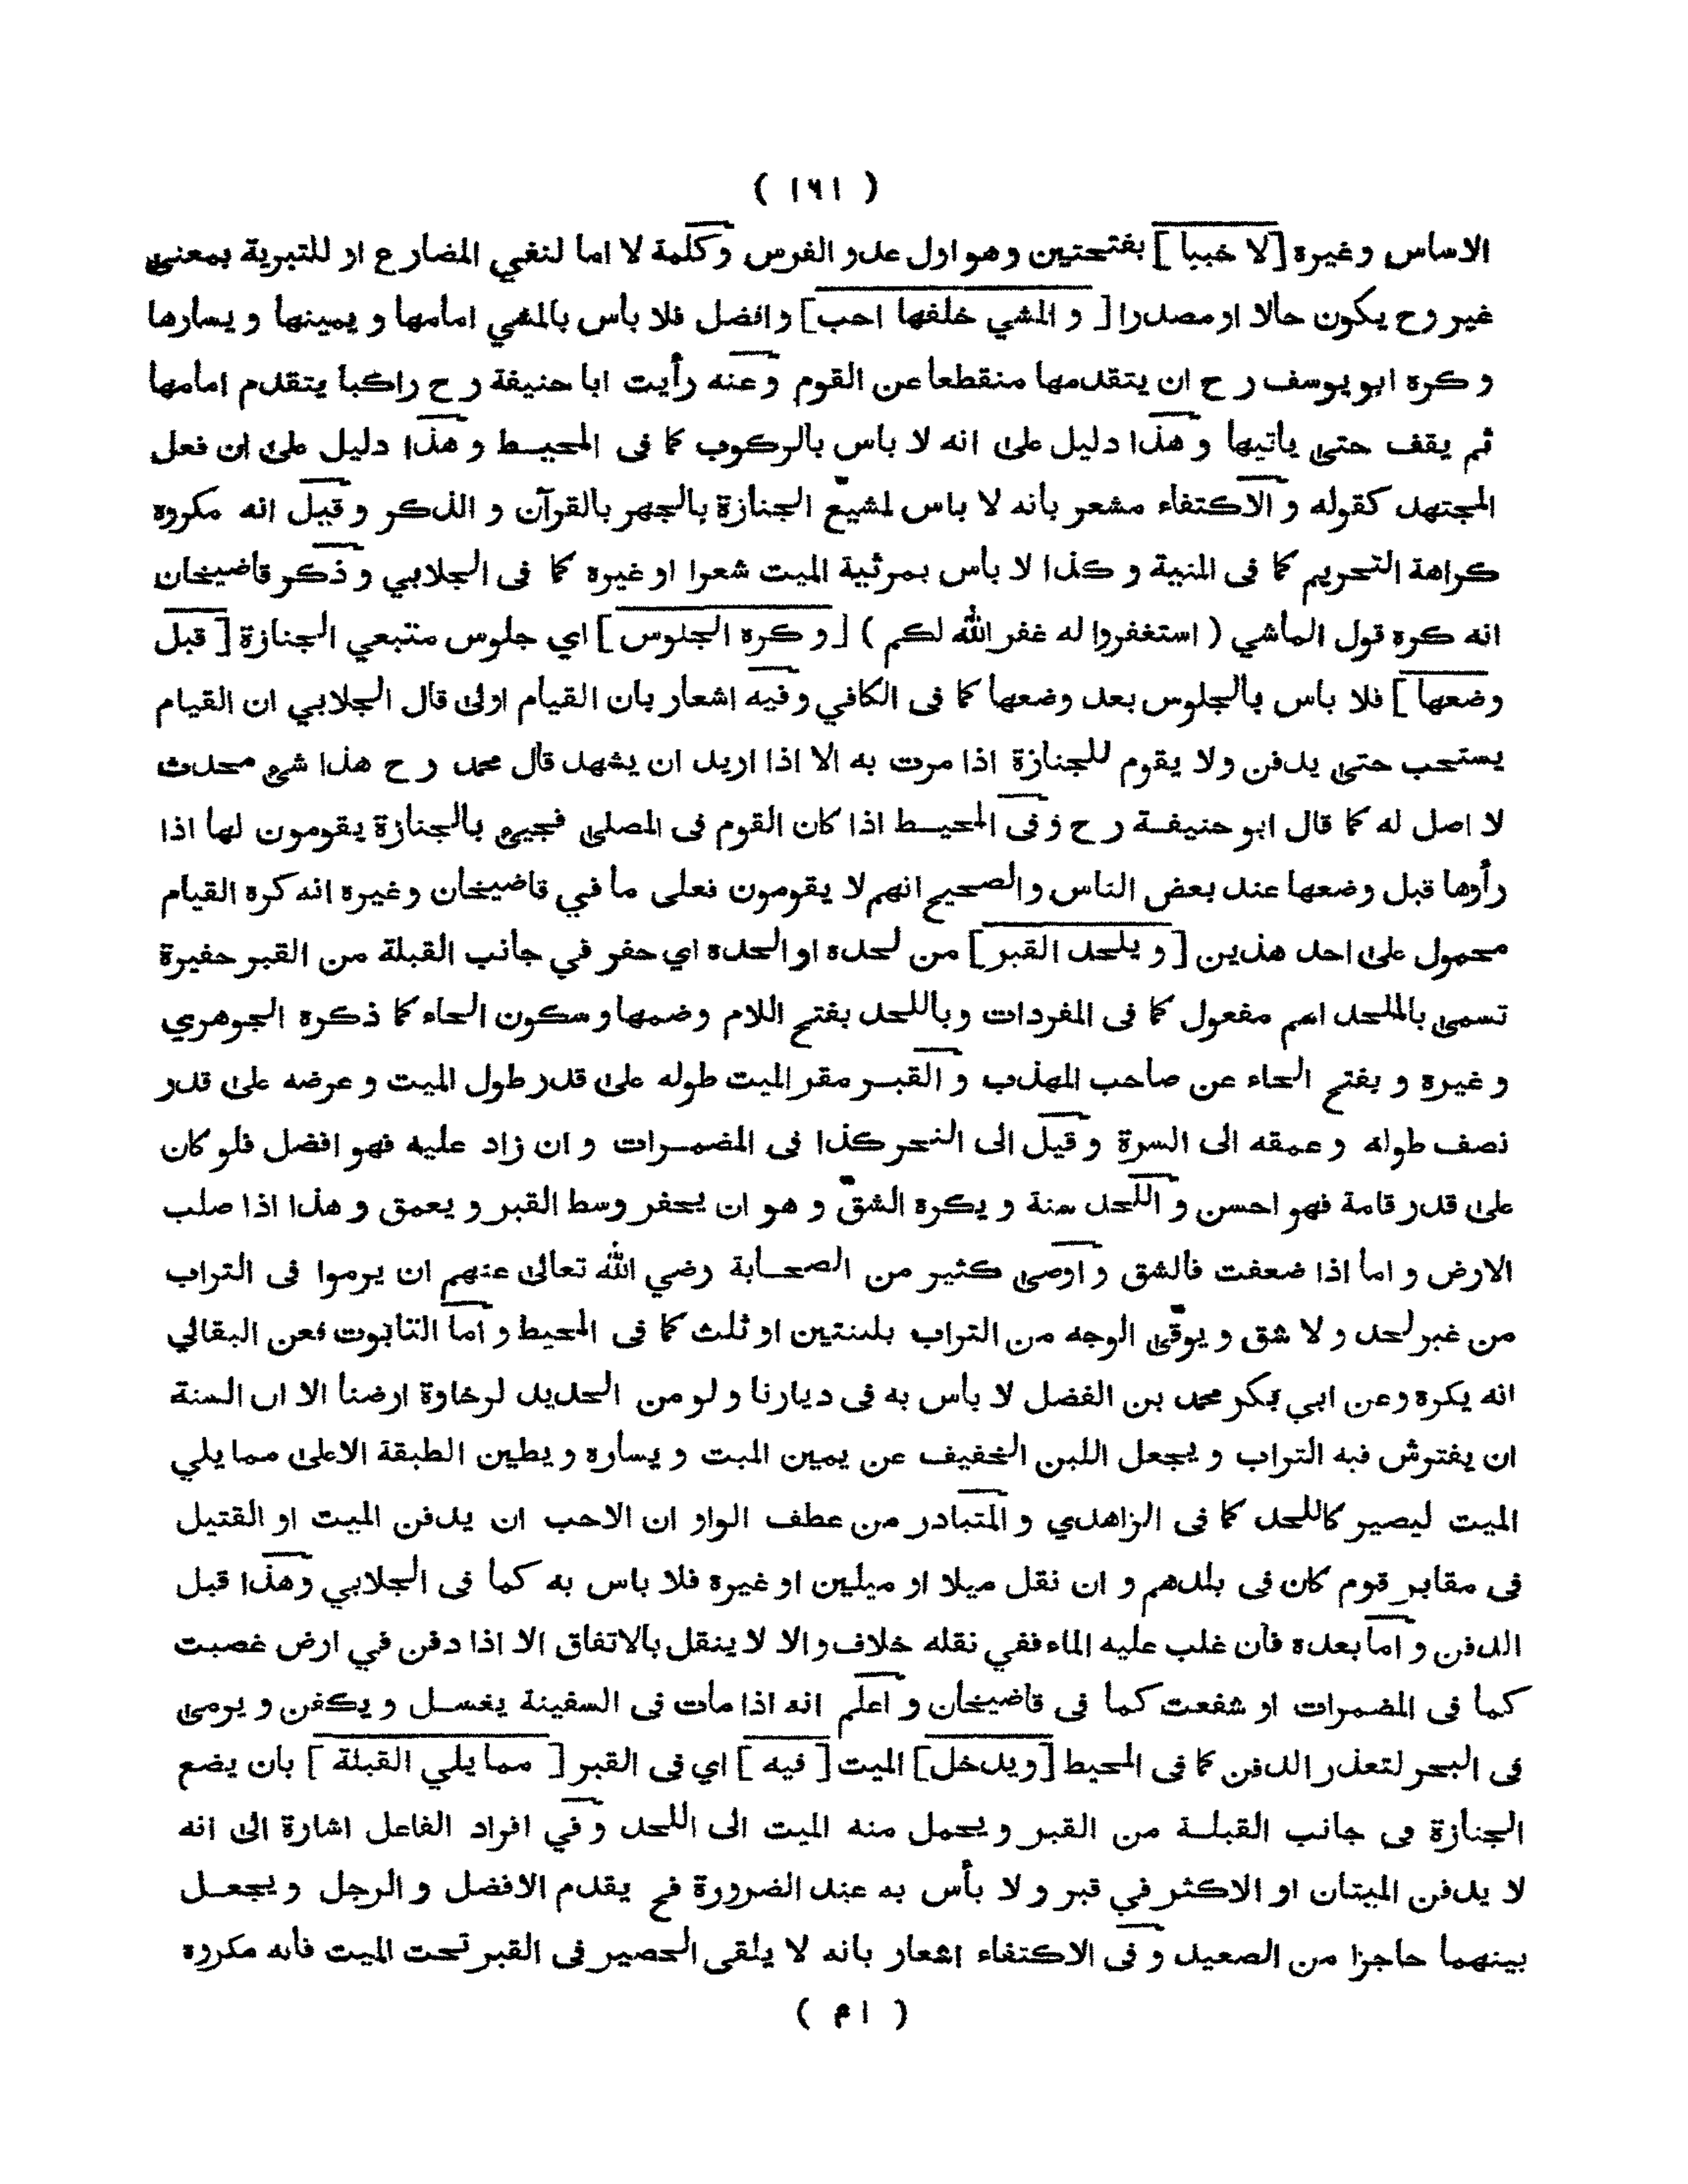 ( ١٦١ )
الاساس وغيره [لا خببا] بفتحتين وهو اول عدو الفرس وكلمة لا اما لنفي المضارع او للتبرية بمعنى
غير وح يكون حالا او مصدرا [و المشي خلفها احب] وافضل فلا بأس بالمشي امامها و يمينها و يسارها
و كره ابو يوسف رح ان يتقدمها منقطعا عن القوم وعنه رأيت ابا حنيفة رح راكبا يتقدم امامها
ثم يقف حتى ياتيها و هذا دليل على انه لا باس بالركوب كما فى المحيط و هذا دليل على ان فعل
المجتهد كقوله و الاكتفاء مشعر بانه لا باس لمشيّع الجنازة بالجهر بالقرآن و الذكر و قيل انه مكروه
كراهة التحريم كما فى المنية و كذا لا بأس بمرثية الميت شعرا او غيره كما فى الجلابي و ذكر قاضيخان
انه كره قول الماشي ( استغفروا له غفر الله لكم ) [و كره الجلوس] اي جلوس متبعي الجنازة [قبل
وضعها] فلا باس بالجلوس بعد وضعها كما فى الكافي وفيه اشعار بان القيام اولى قال الجلابي ان القيام
يستحب حتى يدفن ولا يقوم للجنازة اذا مرت به الا اذا اريد ان يشهد قال محمد رح هذا شيء محدث
لا اصل له كما قال ابو حنيفة رح وفى المحيط اذا كان القوم فى المصلى فجيء بالجنازة يقومون لها اذا
رأوها قبل وضعها عند بعض الناس والصحيح انهم لا يقومون فعلى ما في قاضيخان وغيره انه كره القيام
محمول على احد هذين [و يلحد القبر] من لحده او الحده اي حفر في جانب القبلة من القبر حفيرة
تسمى بالملحد اسم مفعول كما فى المفردات وباللحد بفتح اللام وضمها و سكون الحاء كما ذكره الجوهري
و غيره و بفتح الحاء عن صاحب المهذب و القبر مقر الميت طوله على قدر طول الميت و عرضه على قدر
نصف طوله و عمقه الى السرة و قيل الى النحر كذا فى المضمرات و ان زاد عليه فهو افضل فلو كان
على قدر قامة فهو احسن و اللحد سنة و يكره الشقّ و هو ان يحفر وسط القبر و يعمق و هذا اذا صلب
الارض و اما اذا ضعفت فالشق و اوصى كثير من الصحابة رضي الله تعالى عنهم ان يرموا فى التراب
من غير لحد و لا شق و يوقّى الوجه من التراب بلبنتين او ثلث كما فى المحيط و اما التابوت فعن البقالي
انه يكره وعن ابي بكر محمد بن الفضل لا بأس به فى ديارنا و لو من الحديد لرخاوة ارضنا الا ان السنة
ان يفترش فيه التراب و يجعل اللبن الخفيف عن يمين الميت و يساره و يطين الطبقة الاعلى مما يلي
الميت ليصير كاللحد كما فى الزاهدي و المتبادر من عطف الواو ان الاحب ان يدفن الميت او القتيل
فى مقابر قوم كان فى بلدهم و ان نقل ميلا او ميلين او غيره فلا باس به كما فى الجلابي وهذا قبل
الدفن و اما بعده فان غلب عليه الماء ففي نقله خلاف والا لا ينقل بالاتفاق الا اذا دفن في ارض غصبت
كما فى المضمرات او شفعت كما فى قاضيخان و اعلم انه اذا مات فى السفينة يغسل و يكفن و يرمى
فى البحر لتعذر الدفن كما فى المحيط [ويدخل] الميت [فيه] اي فى القبر [مما يلي القبلة] بان يضع
الجنازة فى جانب القبلة من القبر و يحمل منه الميت الى اللحد و في افراد الفاعل اشارة الى انه
لا يدفن الميتان او الاكثر في قبر و لا بأس به عند الضرورة فح يقدم الافضل و الرجل و يجعل
بينهما حاجزا من الصعيد و فى الاكتفاء اشعار بانه لا يلقى الحصير فى القبر تحت الميت فانه مكروه
( ٤١ )